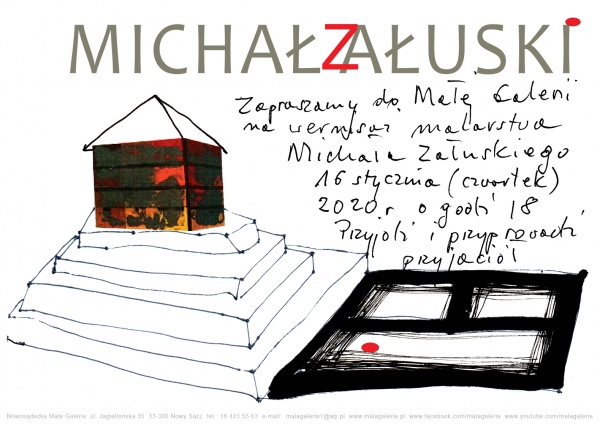 MICHAŁ ZAŁUSKI
Zapraszamy do Małej Galerii
na wernisaż malarstwa
Michała Załuskiego
16 stycznia (czwartek)
2020 r o godz 18
Przyjdź i przyprowadź
przyjaciół
Nowosądecka Mała Galeria ul. Jagiellońska 35 33-300 Nowy Sącz tel.: 18 443 55 63 e-mail.: malagaleria1@wp.pl www.malagaleria.pl www.facebook.com/malagaleria www.youtube.com/malagaleria